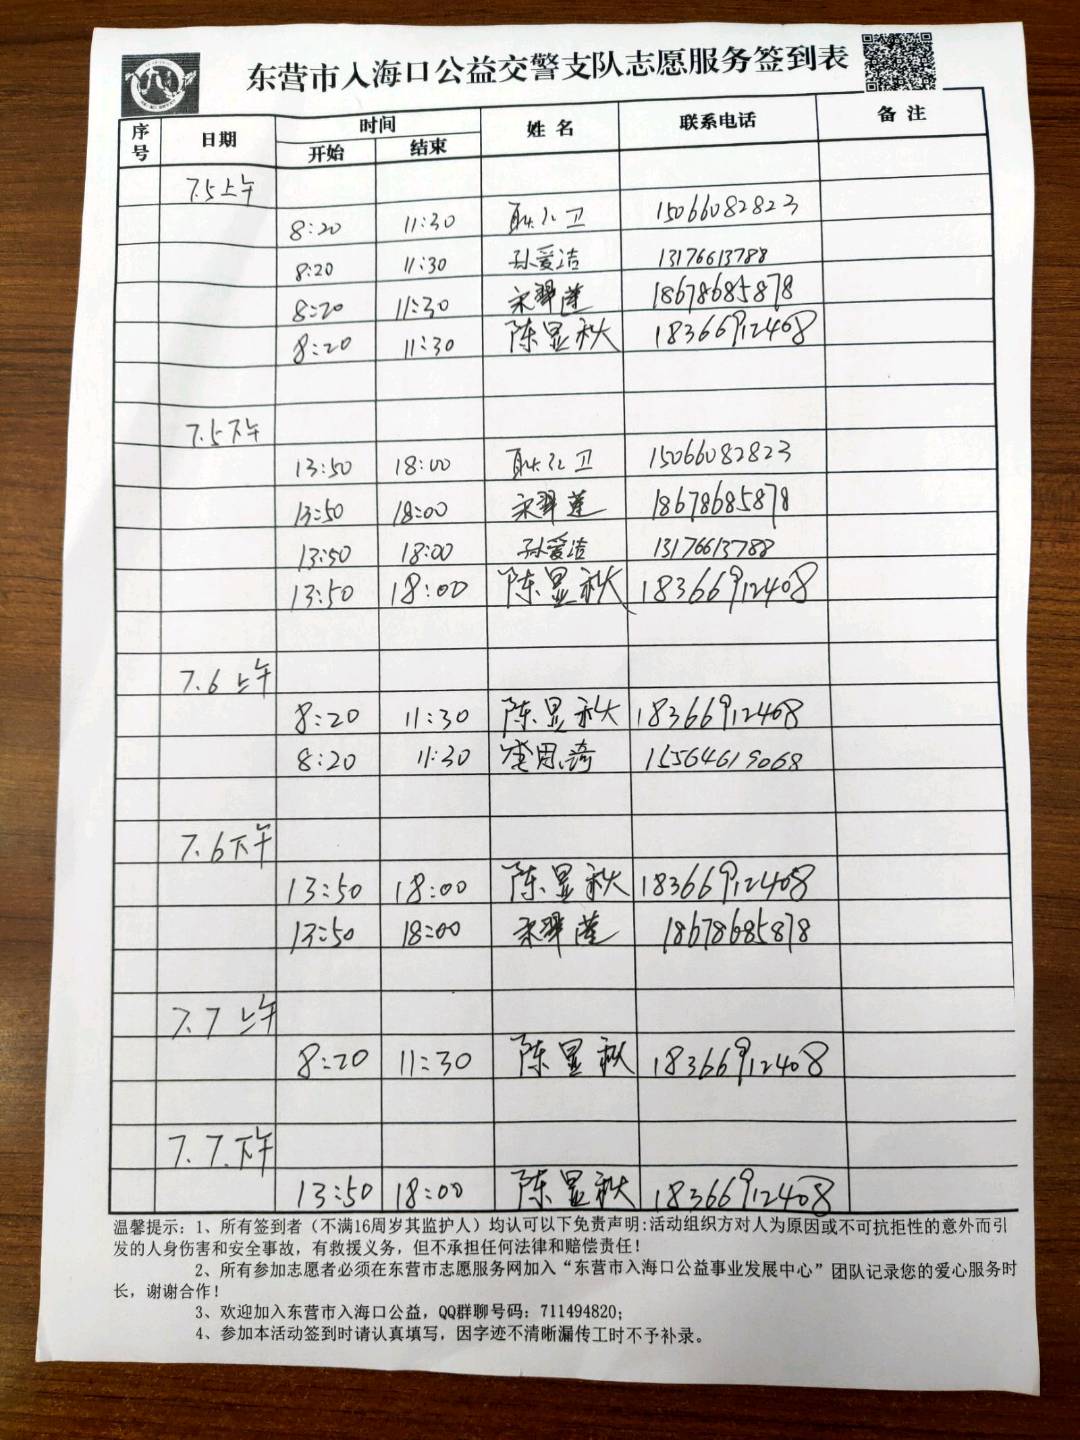 东营市入海口公益交警支队志愿服务签到表
序号 日期 时间 姓名 联系电话 备注
开始 结束
7.5上午
8:20 11:30 耿 卫 15066082823
8:20 11:30 孙爱洁 13176613788
8:20 11:30 宋翠莲 18678685878
8:20 11:30 陈显秋 18366912408
7.5下午
13:50 18:00 耿 卫 15066082823
13:50 18:00 宋翠莲 18678685878
13:50 18:00 孙爱洁 13176613788
13:50 18:00 陈显秋 18366912408
7.6上午
8:20 11:30 陈显秋 18366912408
8:20 11:30 15564619068
7.6下午
13:50 18:00 陈显秋 18366912408
13:50 18:00 宋翠莲 18678685878
7.7上午
8:20 11:30 陈显秋 18366912408
7.7.下午
13:50 18:00 陈显秋 18366912408
温馨提示:1、所有签到者(不满16周岁其监护人)均认可以下免责声明:活动组织方对人为原因或不可抗拒性的意外而引
发的人身伤害和安全事故,有救援义务,但不承担任何法律和赔偿责任!
2、所有参加志愿者必须在东营市志愿服务网加入“东营市入海口公益事业发展中心”团队记录您的爱心服务时
长,谢谢合作!
3、欢迎加入东营市入海口公益,QQ群聊号码:711494820;
4、参加本活动签到时请认真填写,因字迹不清晰漏传工时不予补录。